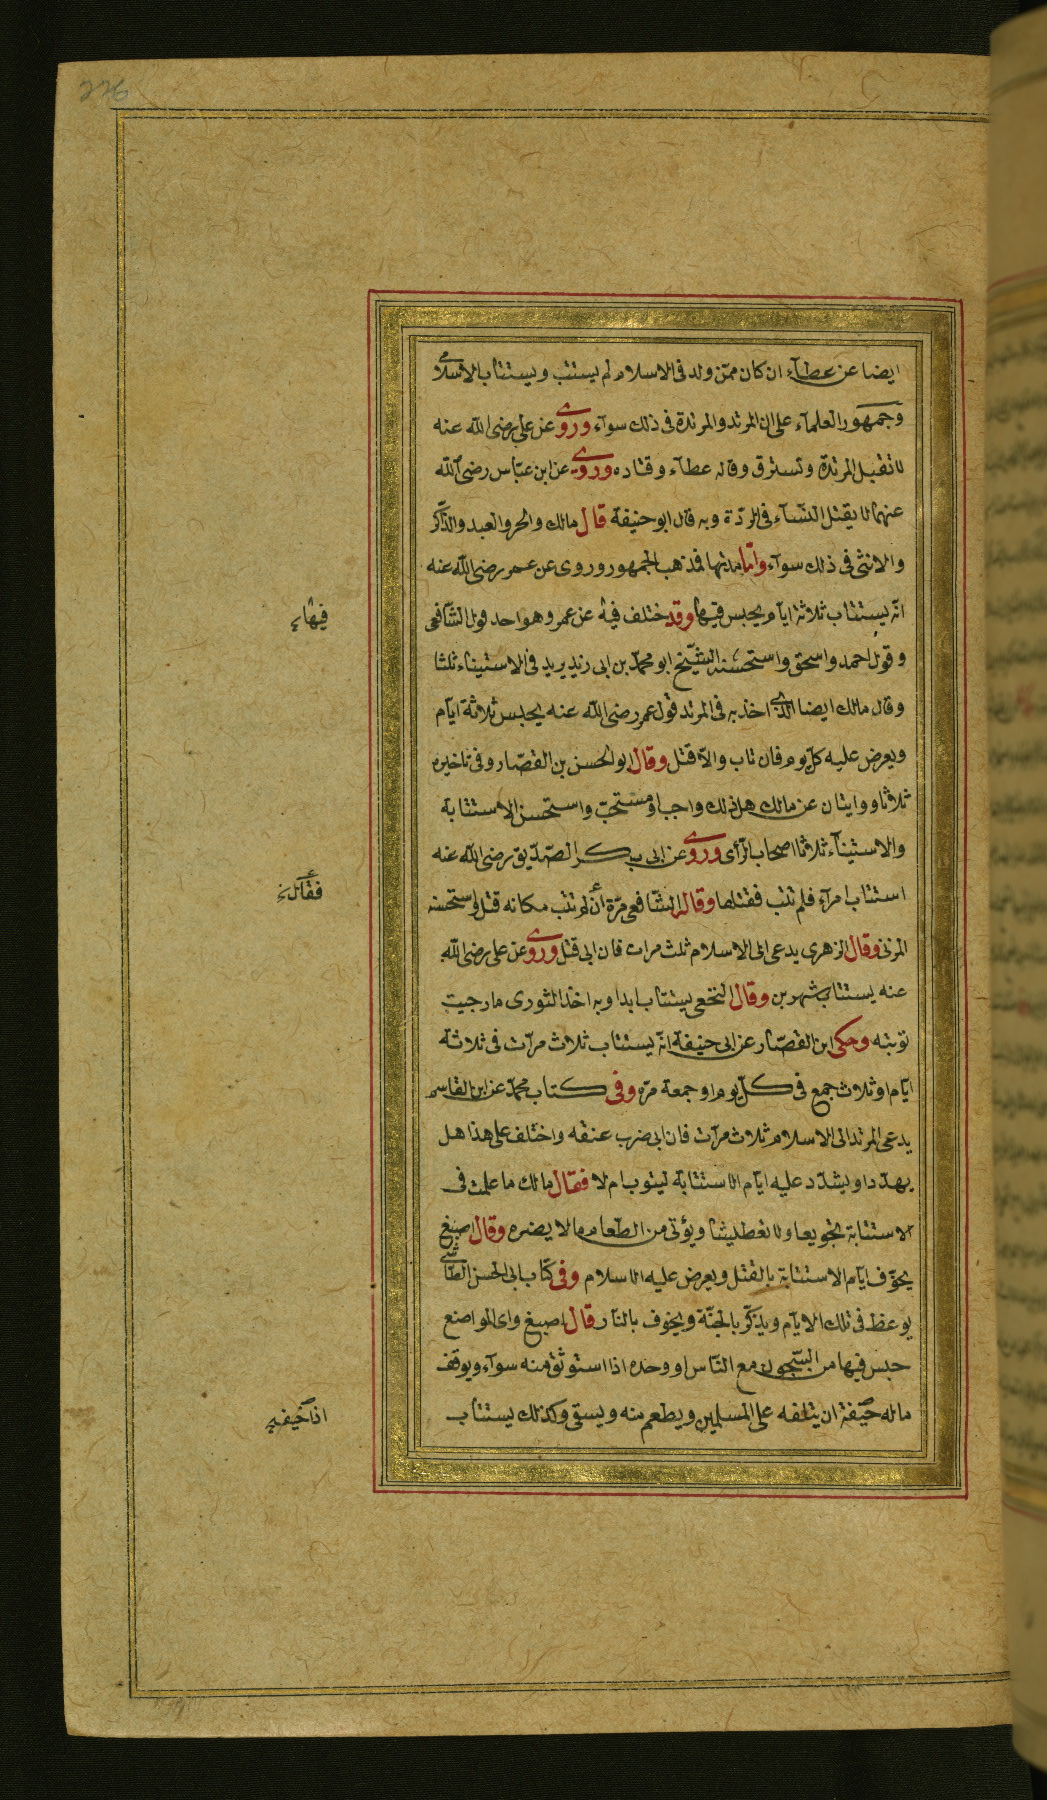 226
ايضا عن عطآء ان كان ممّن ولد فى الاسلام لم يستتب ويستتاب الاسلامى
وجمهور العلمآء على ان المرتد والمرتدة فى ذلك سوآء وروى عن على رضى الله عنه
لا تقتل المرتدة وتسترق وقاله عطآء وقتاده وروى عن ابن عبّاس رضى الله
عنهما لا يقتل النّسآء فى الردّة وبه قال ابو حنيفة قال مالك والحر والعبد والذّكر
والانثى فى ذلك سوآء وامّا مدتها فمذهب الجمهور وروى عن عمر رضى الله عنه
انّه يستتاب ثلاثة ايام يحبس فيها وقد ختلف فيه عن عمر وهو احد قول الشافعى
فيها
وقول احمد واسحق واستحسنه الشّيخ ابو محمّد بن ابى زيد يريد فى الاستيناء ثلثا
وقال مالك ايضا الّذى اخذ به فى المرتد قول عمر رضى الله عنه يحبس ثلاثة ايّام
ويعرض عليه كلّ يوم فان تاب والّا قتل وقال ابو الحسن بن القصّار وفى تاخيره
ثلاثا روايتان عن مالك هل ذلك واجب او مستحبّ واستحسن الاستتابة
والاستينآء ثلاثا اصحاب الرّأى وروى عن ابى بكر الصّدّيق رضى الله عنه
استتاب امرآة فلم تتب فقتلها وقال الشّافعى مرّة ان لم تتب مكانه قتل واستحسنه
فقال
المزنى وقال الزهرى يدعى الى الاسلام ثلث مرات فان ابى قتل وروى عن على رضى الله
عنه يستتاب شهرين وقال النخعى يستتاب ابدا وبه اخذ الثورى ما رجيت
توبته وحكى ابن القصّار عن ابى حنيفة انّه يستتاب ثلاث مرآت فى ثلاثة
ايّام او ثلاث جمع فى كلّ يوم او جمعة مرّه وفى كتاب محمّد عن ابن القاسم
يدعى المرتد الى الاسلام ثلاث مرآت فان ابى ضرب عنقه واختلف على هذا هل
يهدّد او يشدّد عليه ايّام الاستتابة ليتوب ام لا فقال مالك ما علمت فى
الاستتابة تجويعا ولا تعطيشا ويؤتى من الطّعام ما لا يضره وقال اصبغ
يخوّف ايّام الاستتابة بالقتل ويعرض عليه الاسلام وفى كتاب ابى الحسن الطّابثى
يوعظ فى تلك الايّام ويذكّر بالجنّة ويخوف بالنّار قال اصبغ واى المواضع
حبس فيها من السّجون مع النّاس او وحده اذا استوثق منه سوآء ويوقف
ماله خيفة ان يتلفه على المسلمين ويطعم منه ويسقى وكذلك يستتاب
اذا خيف